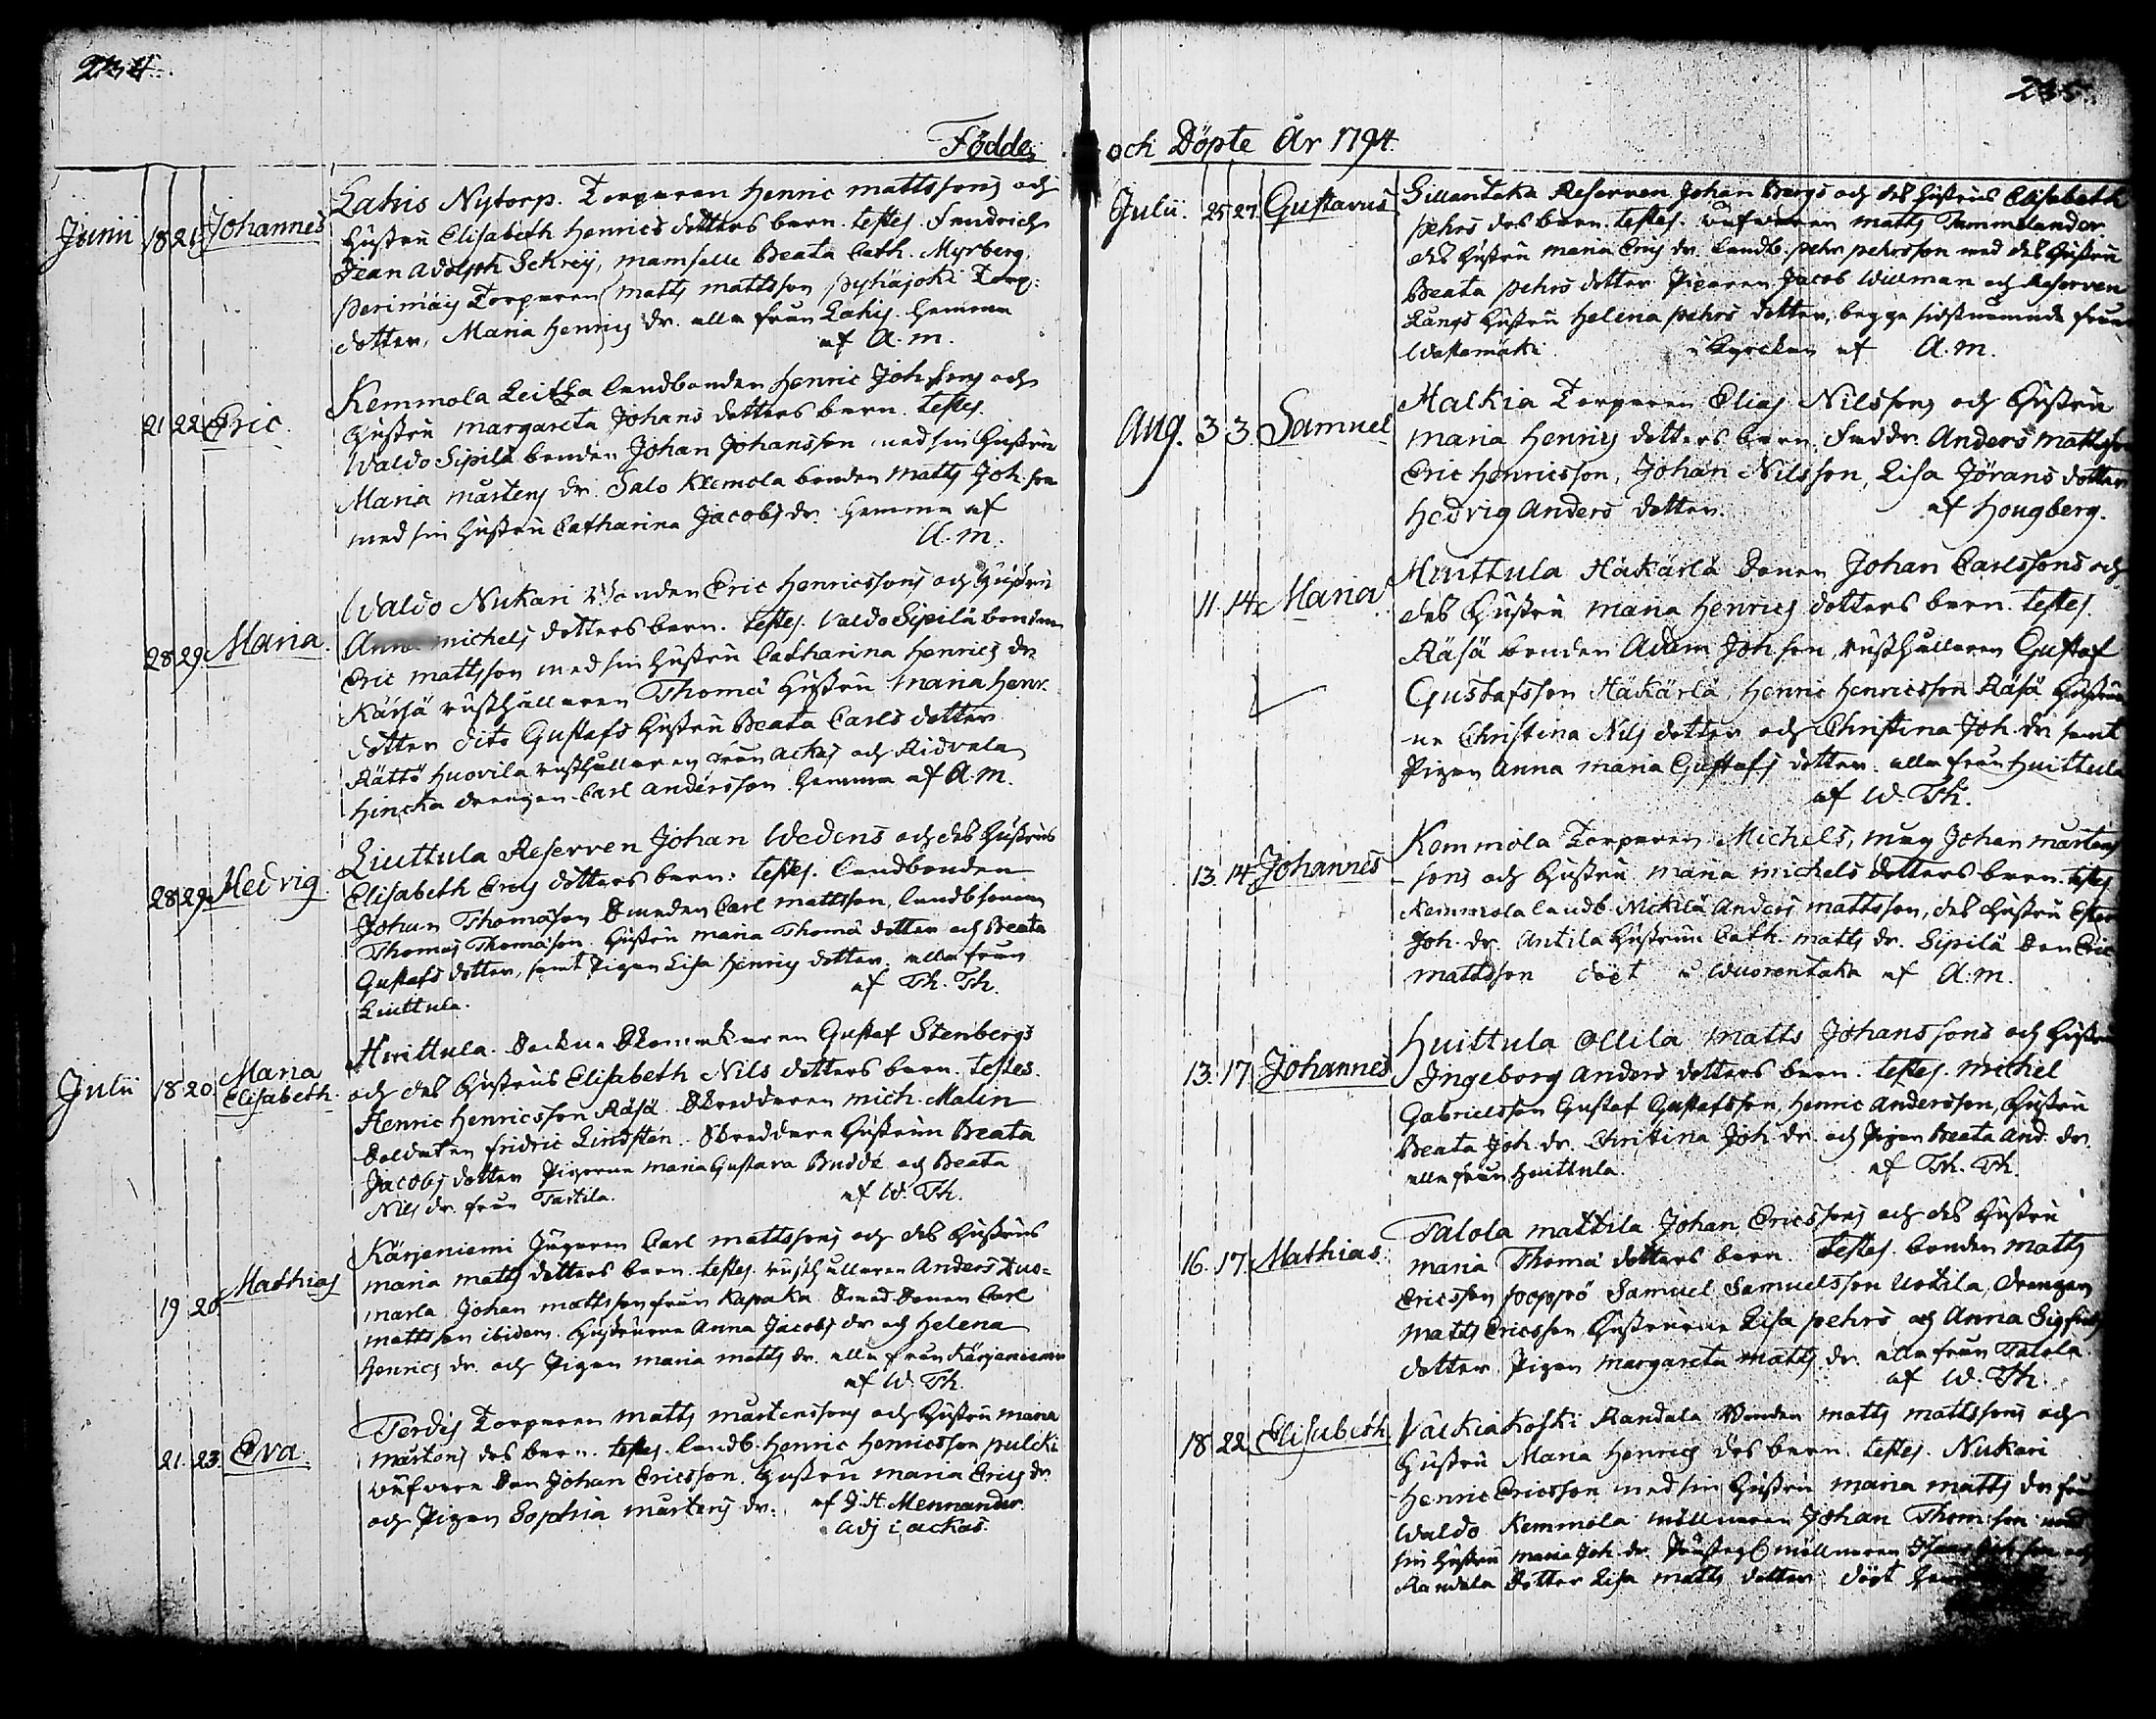 234.
Födde
Junii 18 21 Johannes Lahis Nytorp. Torparen Henric Mattssons och
Hustru Elisabeth Henrics dotters barn. testes. Fendrich
Jean Adolph Schrey, Mamselle Beata Cath. Myrberg,
Perimäis Torparen Matts Mattsson Pyhäjoki Torp:
dotter, Maria Henrics dr. alla från Lahis. hemma
af A. M.
21 22 Eric. Kemmola Leikka landbonden Henric Johssons och
Hustru Margareta Johans dotters barn. testes.
Waldo Sipilä bonden Johan Johansson med sin Hustru
Maria Mårtens dr. Salo Klemola bonden Matts Joh. son
med sin Hustru Catharina Jacobs dr. hemma af
A. M.
28 29 Maria. Waldo Nukari bonden Eric Henricssons och Hustru
Anna Michels dotters barn. testes. Valdo Sipilä bonden
Eric Mattsson med sin Hustru Catharina Henrics dr
Kärsä rusthållaren Thomä Hustru Maria Henr.
dotter dito Gustafs Hustru Beata Carls dotter
Rättö Huovila rusthållaren från Ackas och Ridvala
Hincka drengen Carl Andersson. hemma af A. M.
28 29 Hedvig. Liuttula Reserven Johan Wedens och des Hustrus
Elisabeth Erics dotters barn: testes. landbonden
Johan Thomason Smeden Carl Mattsson, landbsonen
Thomas Thomason. Hustru Maria Thomä dotter och Beata
Gustafs dotter, samt Pigan Lisa Henrics dotter. alla från
Liuttula. af Th. Th.
Julii 18 20. Maria Elisabeth. Huittula. Sockne Skomakaren Gustaf Stenbergs
och des Hustrus Elisabeth Nils dotters barn. testes.
Henric Henricsson Räsä. Skreddaren Mich. Malin
Soldaten Fridric Lindsten. Skreddare Hustrun Beata
Jacobs dotter Pigorna Maria Gustava Buddé och Beata
Nils dr. från Tastila. af W. Th.
19 20 Mathias Kärjeniemi Jägaren Carl Mattssons och des Hustrus
Maria Matts dotters barn. testes. rusthållaren Anders Duo=
marla. Johan Mattsson från Kapaka Smed Sonen Carl
Mattsson ibidem. Hustrurna Anna Jacobs dr och Helena
Henrics dr. och Pigan Maria Matts dr. alla från Kärjeniemi
af W. Th.
21. 23. Eva. Terdis Torparen Matts Mårtenssons och Hustru Maria
Mårtens des barn. testes. landb. Henric Henricsson Pulcki
Johan Ericsson. Hustru Maria Erics dr
och Pigan Sophia Mårtens dr. af J. H. Mennander.
Adj i Ackas.
235.
och Döpte År 1794.
Julii. 25 27. Gustavus Sillantaka Reserven Johan Bergs och des Hustrus Elisabeth
Pehrs des barn. testes. Matts Tammelander
des Hustru Maria Erics dr. landb. Pehr Pehrsson med des Hustru
Beata Pehrs dotter Jacob Willman och Reserven
Långs Hustru Helena Pehrs dotter, begge sidstnämnde från
Wästämäki. i kyrckan af A. M.
Aug. 3 3. Samuel Halkia Torparen Elias Nilssons och Hustru
Maria Henrics dotters barn. Faddr. Anders Mattsson
Eric Henricsson, Johan Nilsson, Lisa Jörans dotter
Hedvig Anders dotter. af Hougberg.
11. 14. Maria Huittula Häkärlä Sonen Johan Carlssons och
des Hustru Maria Henrics dotters barn. testes.
Räsä bonden Adam Johson, rusthållaren Gustaf
Gustafsson Häkärlä, Henric Henricsson Räsä Hustrur
na Christina Nils dotter och Christina Joh. dr samt
Pigan Anna Maria Gustafs dotter. alla från Huittula
af W. Th.
13. 14 Johannes Kemmola Torparen Michels, måg Johan Mårtens
sons och Hustru Maria Michels dotters barn. testes
Kemmola landb. Mickilä Anders Mattsson, des Hustru Ester
Joh. dr. Antila Hustrun Cath. Matts dr. Sipilä Son Eric
Mattsson döpt i Wuorentaka af A. M.
13. 17. Johannes Huittula Ollila Matts Johanssons och Hustru
Ingeborg Anders dotters barn. testes. Michel
Gabrielsson Gustaf Gustafsson, Henric Andersson, Hustru
Beata Joh. dr. Christina Joh dr. och Pigan Beata And. dr.
alla från Huittula. af Th. Th.
16. 17. Mathias. Talola Mattila Johan Ericssons och des Hustru
Maria Thomä dotters barn. testes. bonden Matts
Ericsson Poppo Samuel Samuelsson Uotila, drengen
Matts Ericsson Hustrurna Lisa Pehrs och Anna Sigfrids
dotter Pigan Margareta Matts dr. alla från Talola.
af W. Th.
18 22 Elisabeth Valkiakoski Randala bonden Matts Mattssons och
Hustru Maria Henrics des barn. testes. Nukari
Henric Ericsson med sin Hustru Maria Matts dr från
Waldo Kemmola möllnaren Johan Thomsson med
sin Hustru Maria Joh. dr. möllnaren
Randala Dotter Lisa Matts dotter. döpt